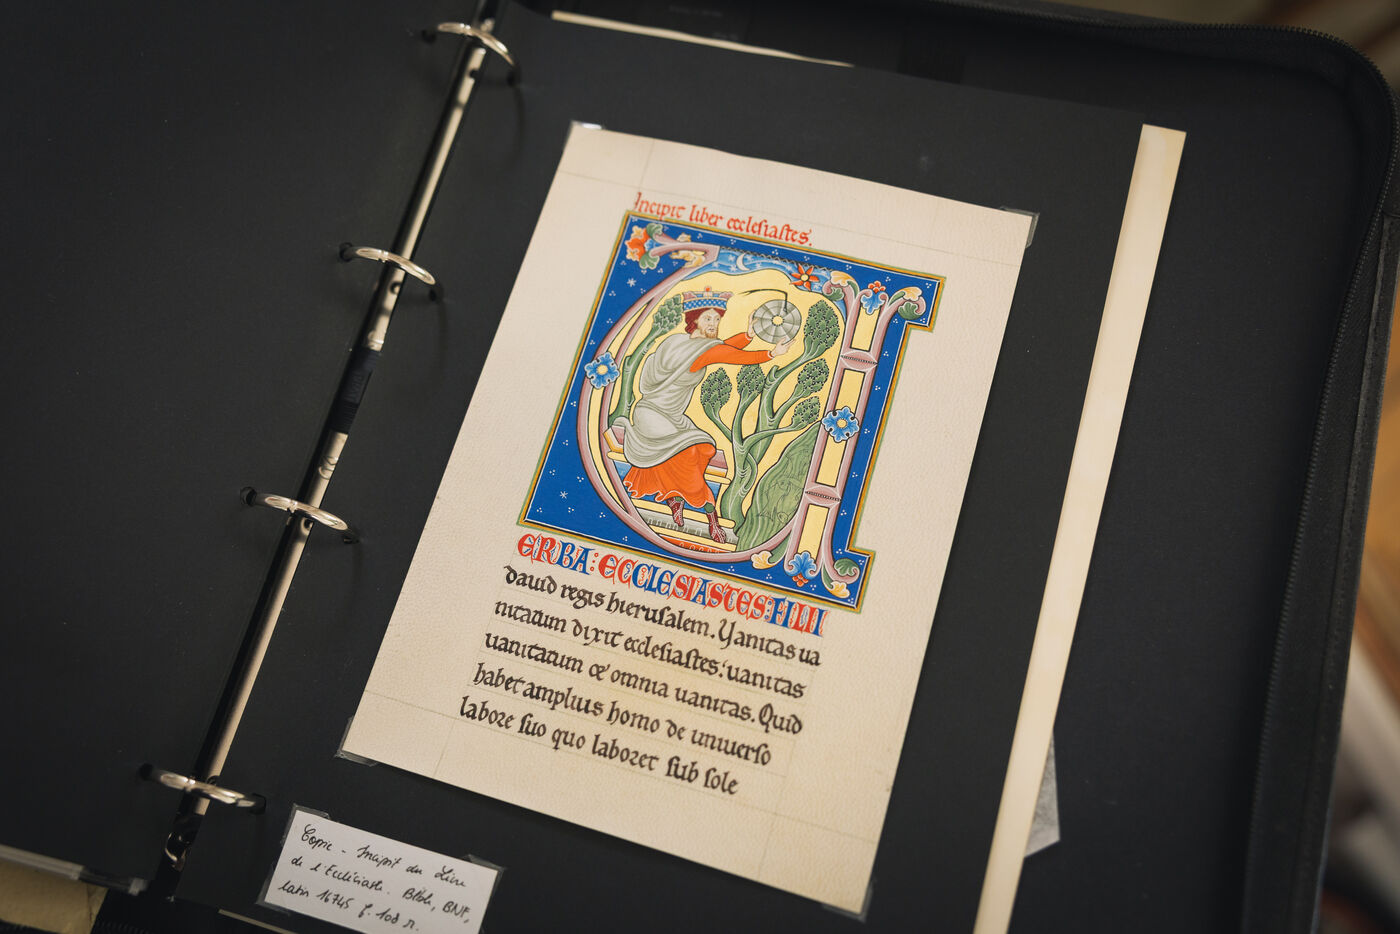 Incipit liber ecclesiastes.
ERBA: ECCLESIASTES: FILII
dauid regis hierusalem. Vanitas ua
nitatum dixit ecclesiastes: uanitas
uanitatum & omnia uanitas. Quid
habet amplius homo de uniuerso
labore suo quo laboret sub sole
Copie - Incipit du Livre
de l'Ecclésiaste. Bible, BNF,
latin 16745 f. 108 r.